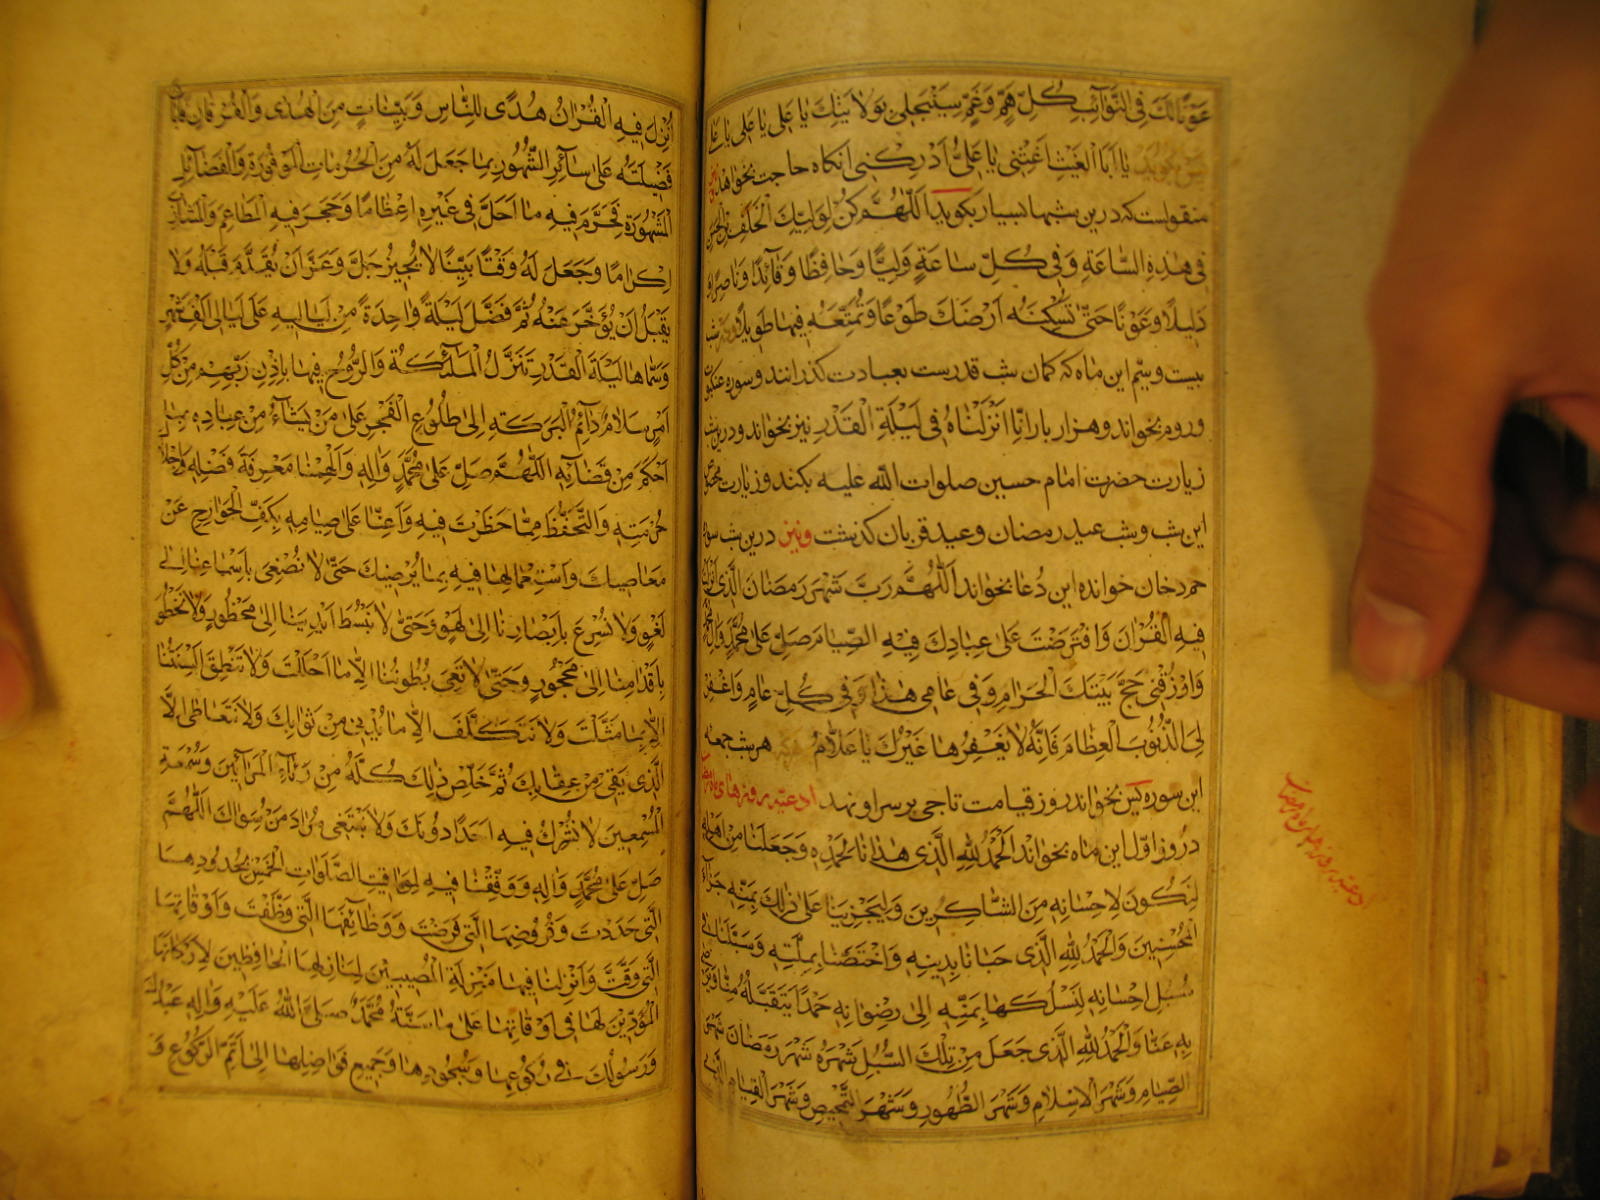 عَوْنًا لَكَ فِي النَّوَائِبِ كُلِّ هَمٍّ وَغَمٍّ سَيَنْجَلِي بِوَلَايَتِكَ يَا عَلِي يَا عَلِي يَا عَلِي
يَا أَبَا الْغَيْثِ أَغِثْنِي يَا عَلِيُّ أَدْرِكْنِي انكاه حاجت بخواهد
منقولست كه درين شبها بسيار بكويد اَللّهُمَّ كُنْ لِوَلِيِّكَ الْخَلَفِ
فِي هٰذِهِ السَّاعَةِ وَفِي كُلِّ سَاعَةٍ وَلِيًّا وَحَافِظًا وَقَائِدًا وَنَاصِرًا وَ
دَلِيلًا وَعَوْنًا حَتّٰى تُسْكِنَهُ أَرْضَكَ طَوْعًا وَتُمَتِّعَهُ فِيهَا طَوِيلًا
بيست وسيّم اين ماه كه كمان شب قدرست بعبادت كذرانند وسوره عنكبوت
وروم بخواند وهزار بار اِنَّا اَنْزَلْنَاهُ فِي لَيْلَةِ الْقَدْرِ نيز بخواند ودرين شب
زيارت حضرت امام حسين صلوات الله عليه بكند وزيارت
اين شب وشب عيد رمضان وعيد قربان كذشت ونيز درين شب سوره
حم دخان خوانده اين دُعا بخواند اَللّٰهُمَّ رَبَّ شَهْرِ رَمَضَانَ الَّذِي اَنْزَلْتَ
فِيهِ الْقُرْآنَ وَافْتَرَضْتَ عَلٰى عِبَادِكَ فِيهِ الصِّيَامَ صَلِّ عَلٰى مُحَمَّدٍ وَآلِ
وَارْزُقْنِي حَجَّ بَيْتِكَ الْحَرَامِ وَفِي عَامِي هٰذَا وَفِي كُلِّ عَامٍ وَاغْفِرْ
لِيَ الذُّنُوبَ الْعِظَامَ فَاِنَّهُ لَا يَغْفِرُهَا غَيْرُكَ يَا عَلَّامُ هر شب جمعه
اين سوره بخواند روز قيامت تاجى بر سر او نهد ادعيه روزهاى ماه
در روز اوّل اين ماه بخواند اَلْحَمْدُ لِلّٰهِ الَّذِي هَدَانَا لِحَمْدِهِ وَجَعَلَنَا مِنْ اَهْلِهِ
لِنَكُونَ لِاِحْسَانِهِ مِنَ الشَّاكِرِينَ وَلِيَجْزِيَنَا عَلٰى ذٰلِكَ بِمَنِّهِ جَزَاءَ
الْمُحْسِنِينَ وَالْحَمْدُ لِلّٰهِ الَّذِي حَبَانَا بِدِينِهِ وَاخْتَصَّنَا بِمِلَّتِهِ وَسَبَّلَنَا فِي
سُبُلِ اِحْسَانِهِ لِنَسْلُكَهَا بِمَنِّهِ اِلٰى رِضْوَانِهِ حَمْدًا يَتَقَبَّلُهُ مِنَّا وَيَرْضٰى
بِهِ عَنَّا وَالْحَمْدُ لِلّٰهِ الَّذِي جَعَلَ مِنْ تِلْكَ السُّبُلِ شَهْرَهُ شَهْرَ رَمَضَانَ شَهْرَ
الصِّيَامِ وَشَهْرَ الْاِسْلَامِ وَشَهْرَ الطَّهُورِ وَشَهْرَ التَّمْحِيصِ وَشَهْرَ الْقِيَامِ الَّذِي
ادعيه روزهاى ماه رمضان
اُنْزِلَ فِيهِ الْقُرْآنُ هُدًى لِلنَّاسِ وَبَيِّنَاتٍ مِنَ الْهُدٰى وَالْفُرْقَانِ فَاَبَانَ
فَضِيلَتَهُ عَلٰى سَائِرِ الشُّهُورِ بِمَا جَعَلَ لَهُ مِنَ الْحُرُمَاتِ الْمَوْفُورَةِ وَالْفَضَائِلِ
الْمَشْهُورَةِ فَحَرَّمَ فِيهِ مَا اَحَلَّ فِي غَيْرِهِ اِعْظَامًا وَحَجَرَ فِيهِ الْمَطَاعِمَ وَالْمَشَارِبَ
اِكْرَامًا وَجَعَلَ لَهُ وَقْتًا بَيِّنًا لَا يُجِيزُ جَلَّ وَعَزَّ اَنْ يُقَدَّمَ قَبْلَهُ وَلَا
يَقْبَلُ اَنْ يُؤَخَّرَ عَنْهُ ثُمَّ فَضَّلَ لَيْلَةً وَاحِدَةً مِنْ لَيَالِيهِ عَلٰى لَيَالِي اَلْفِ شَهْرٍ
وَسَمَّاهَا لَيْلَةَ الْقَدْرِ تَنَزَّلُ الْمَلٰئِكَةُ وَالرُّوحُ فِيهَا بِاِذْنِ رَبِّهِمْ مِنْ كُلِّ
اَمْرٍ سَلَامٌ دَائِمُ الْبَرَكَةِ اِلٰى طُلُوعِ الْفَجْرِ عَلٰى مَنْ يَشَاءُ مِنْ عِبَادِهِ بِمَا
اَحْكَمَ مِنْ قَضَائِهِ اَللّٰهُمَّ صَلِّ عَلٰى مُحَمَّدٍ وَآلِهِ وَاَلْهِمْنَا مَعْرِفَةَ فَضْلِهِ وَاِجْلَالَ
حُرْمَتِهِ وَالتَّحَفُّظَ مِمَّا حَظَرْتَ فِيهِ وَاَعِنَّا عَلٰى صِيَامِهِ بِكَفِّ الْجَوَارِحِ عَنْ
مَعَاصِيكَ وَاسْتِعْمَالِهَا فِيهِ بِمَا يُرْضِيكَ حَتّٰى لَا نُصْغِيَ بِاَسْمَاعِنَا اِلٰى
لَغْوٍ وَلَا نُسْرِعَ بِاَبْصَارِنَا اِلٰى لَهْوٍ وَحَتّٰى لَا نَبْسُطَ اَيْدِيَنَا اِلٰى مَحْظُورٍ وَلَا نَخْطُوَ
بِاَقْدَامِنَا اِلٰى مَحْجُورٍ وَحَتّٰى لَا تَعِيَ بُطُونُنَا اِلَّا مَا اَحْلَلْتَ وَلَا تَنْطِقَ اَلْسِنَتُنَا
اِلَّا بِمَا مَثَّلْتَ وَلَا نَتَكَلَّفَ اِلَّا مَا يُدْنِي مِنْ ثَوَابِكَ وَلَا نَتَعَاطٰى اِلَّا
الَّذِي يَقِي مِنْ عِقَابِكَ ثُمَّ خَلِّصْ ذٰلِكَ كُلَّهُ مِنْ رِئَاءِ الْمُرَائِينَ وَسُمْعَةِ
الْمُسْمِعِينَ لَا نُشْرِكُ فِيهِ اَحَدًا دُونَكَ وَلَا نَبْتَغِي مُرَادَ مَنْ سِوَاكَ اَللّٰهُمَّ
صَلِّ عَلٰى مُحَمَّدٍ وَآلِهِ وَوَفِّقْنَا فِيهِ لِمَوَاقِيتِ الصَّلَوَاتِ الْخَمْسِ بِحُدُودِهَا
الَّتِي حَدَّدْتَ وَفُرُوضِهَا الَّتِي فَرَضْتَ وَوَظَائِفِهَا الَّتِي وَظَّفْتَ وَاَوْقَاتِهَا
الَّتِي وَقَّتَّ وَاَنْزِلْنَا فِيهَا مَنْزِلَةَ الْمُصِيبِينَ لِمَنَازِلِهَا الْحَافِظِينَ لِاَرْكَانِهَا
الْمُؤَدِّينَ لَهَا فِي اَوْقَاتِهَا عَلٰى مَا سَنَّهُ مُحَمَّدٌ صَلَّى اللّٰهُ عَلَيْهِ وَآلِهِ عَبْدُكَ
وَرَسُولُكَ فِي رُكُوعِهَا وَسُجُودِهَا وَجَمِيعِ فَوَاضِلِهَا اِلٰى اَتَمِّ الرُّكُوعِ وَ